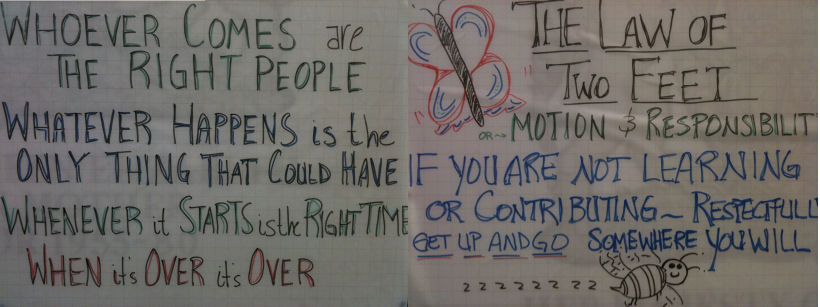 WHOEVER COMES are
THE RIGHT PEOPLE
WHATEVER HAPPENS is the
ONLY THING THAT COULD HAVE
WHENEVER it STARTS is the RIGHT TIME
WHEN it's OVER it's OVER
THE LAW OF
TWO FEET
OR~ MOTION & RESPONSIBILIT
IF YOU ARE NOT LEARNING
OR CONTRIBUTING~ RESPECTFULL
GET UP AND GO SOMEWHERE YOU WILL
z z z z z z z z